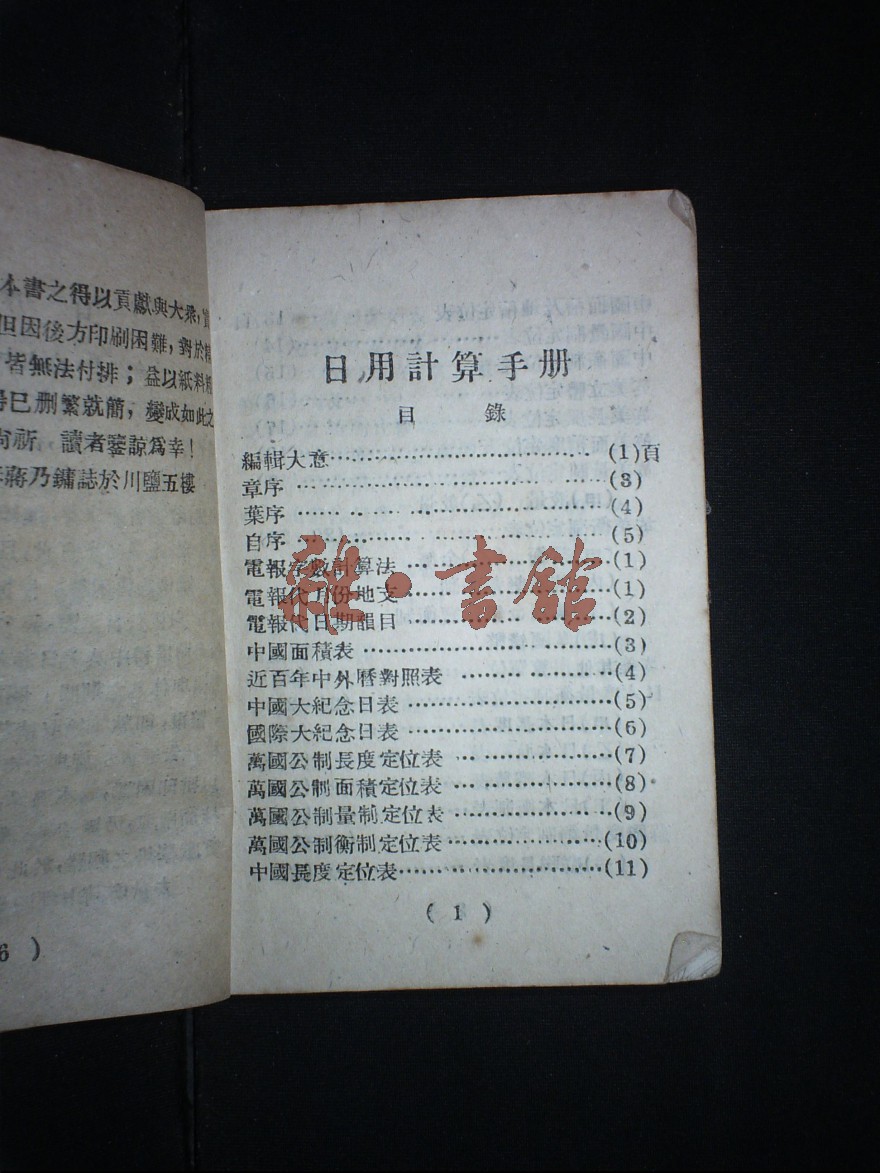 本書之得以貢獻與大衆,
但因後方印刷困難,對於
皆無法付排;益以紙料
得已删繁就簡,變成如此之
尚祈 讀者鑒諒爲幸!
蔣乃鏞誌於川鹽五樓
6 )
日用計算手册
目 錄
編輯大意………………………(1)頁
章序………………………(3)
葉序………………………(4)
自序………………………(5)
電報字數計算法………………(1)
電報代月份地支………………(1)
電報代日期韻目………………(2)
中國面積表………………(3)
近百年中外曆對照表………………(4)
中國大紀念日表………………(5)
國際大紀念日表………………(6)
萬國公制長度定位表………………(7)
萬國公制面積定位表………………(8)
萬國公制量制定位表………………(9)
萬國公制衡制定位表………………(10)
中國長度定位表………………(11)
( 1 )
雜·書館